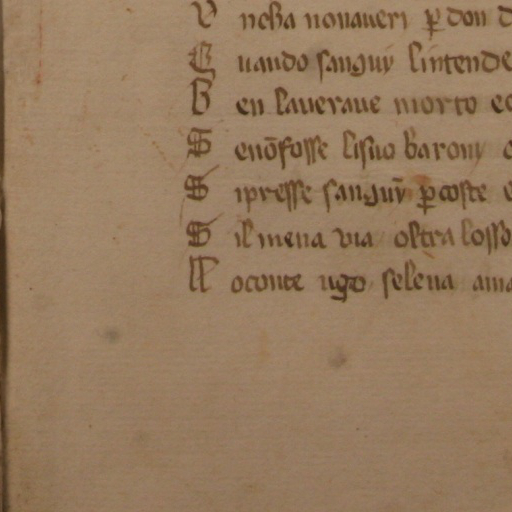 V ncħa nonaueri ꝑ don d
G uando sanguĩ lintende
B en laueraue morto ec
S enõ fosse lisuo baroni
S i presse sanguĩ ꝑ coste e
S il mena uia oltra losso
Lo conte ugo selena ama